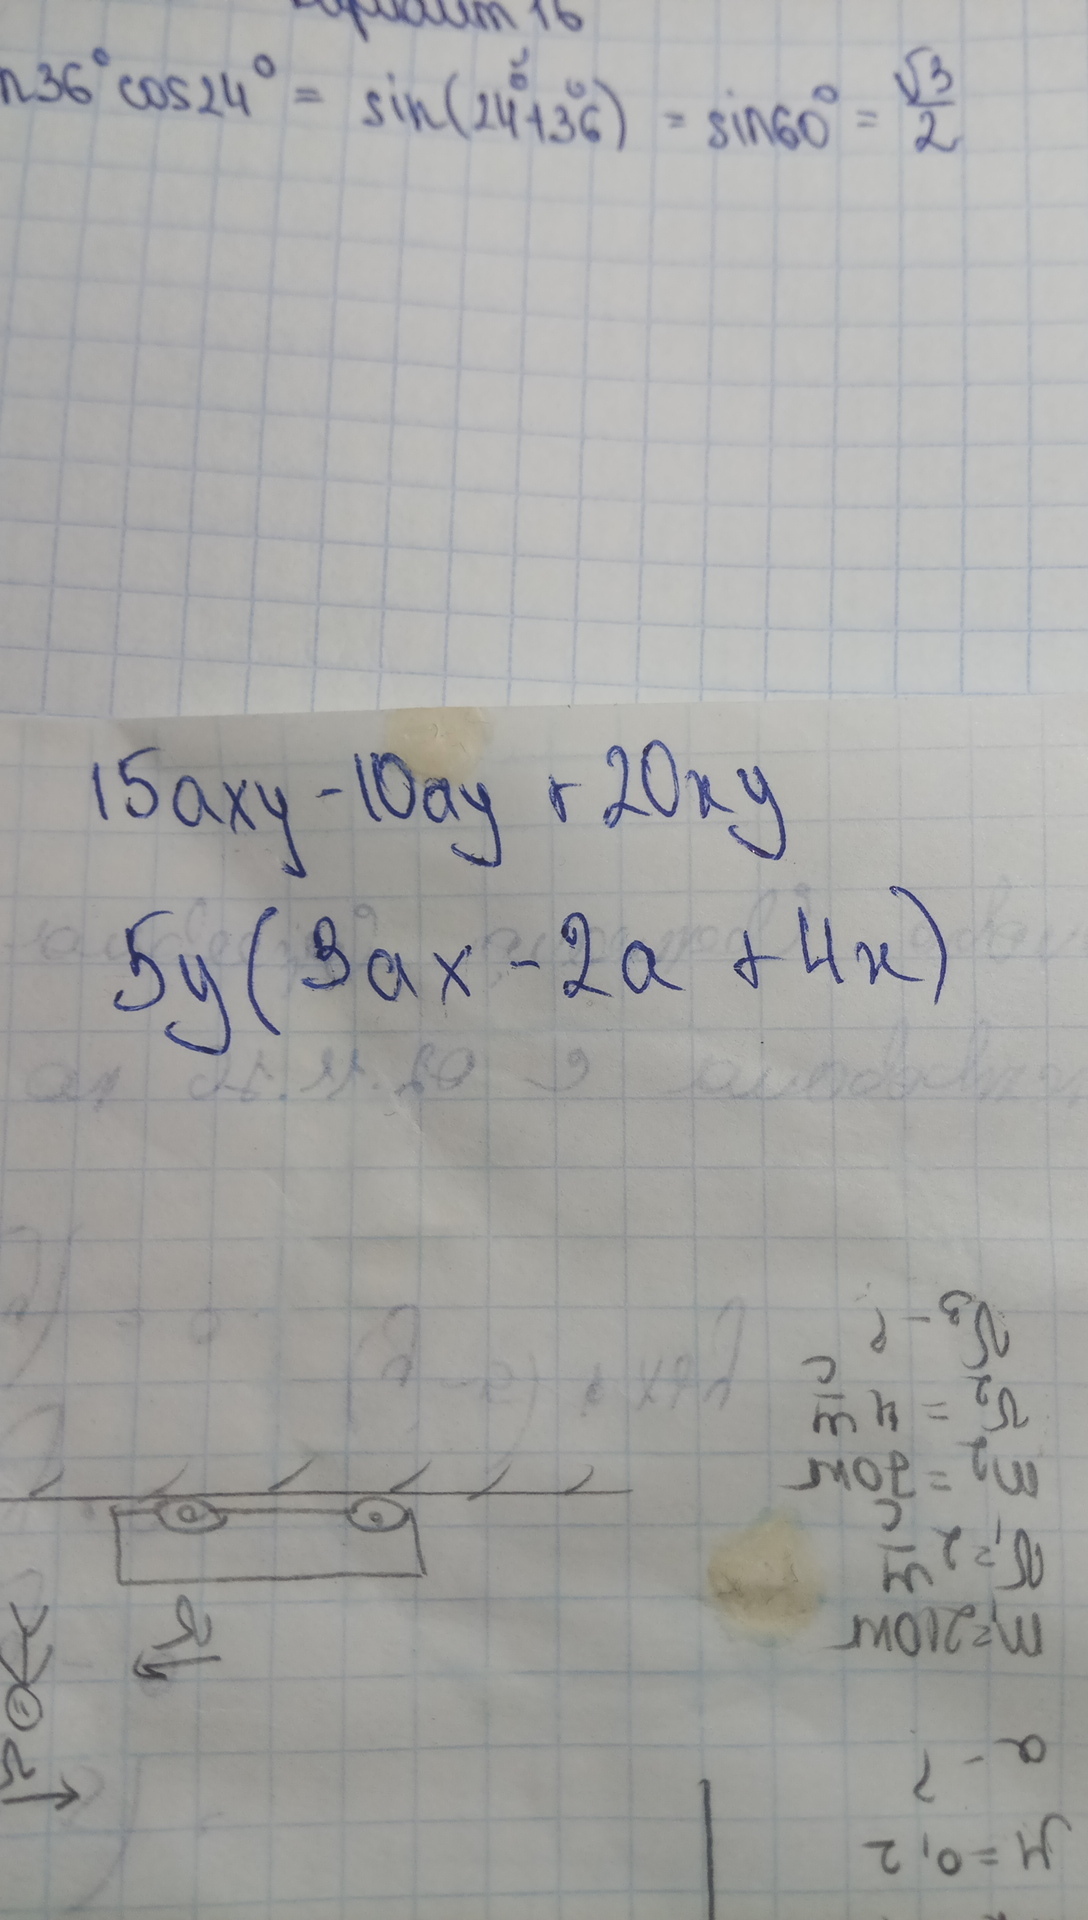 Вариант 16
n36° cos24° = sin(24°+36°) = sin60° = √3/2
15axy - 10ay + 20xy
5y(3ax - 2a + 4x)
m₁=210кг
v₁=2 м/с
m₂=70кг
v₂=4 м/с
v₃-?
a-?
μ=0,2